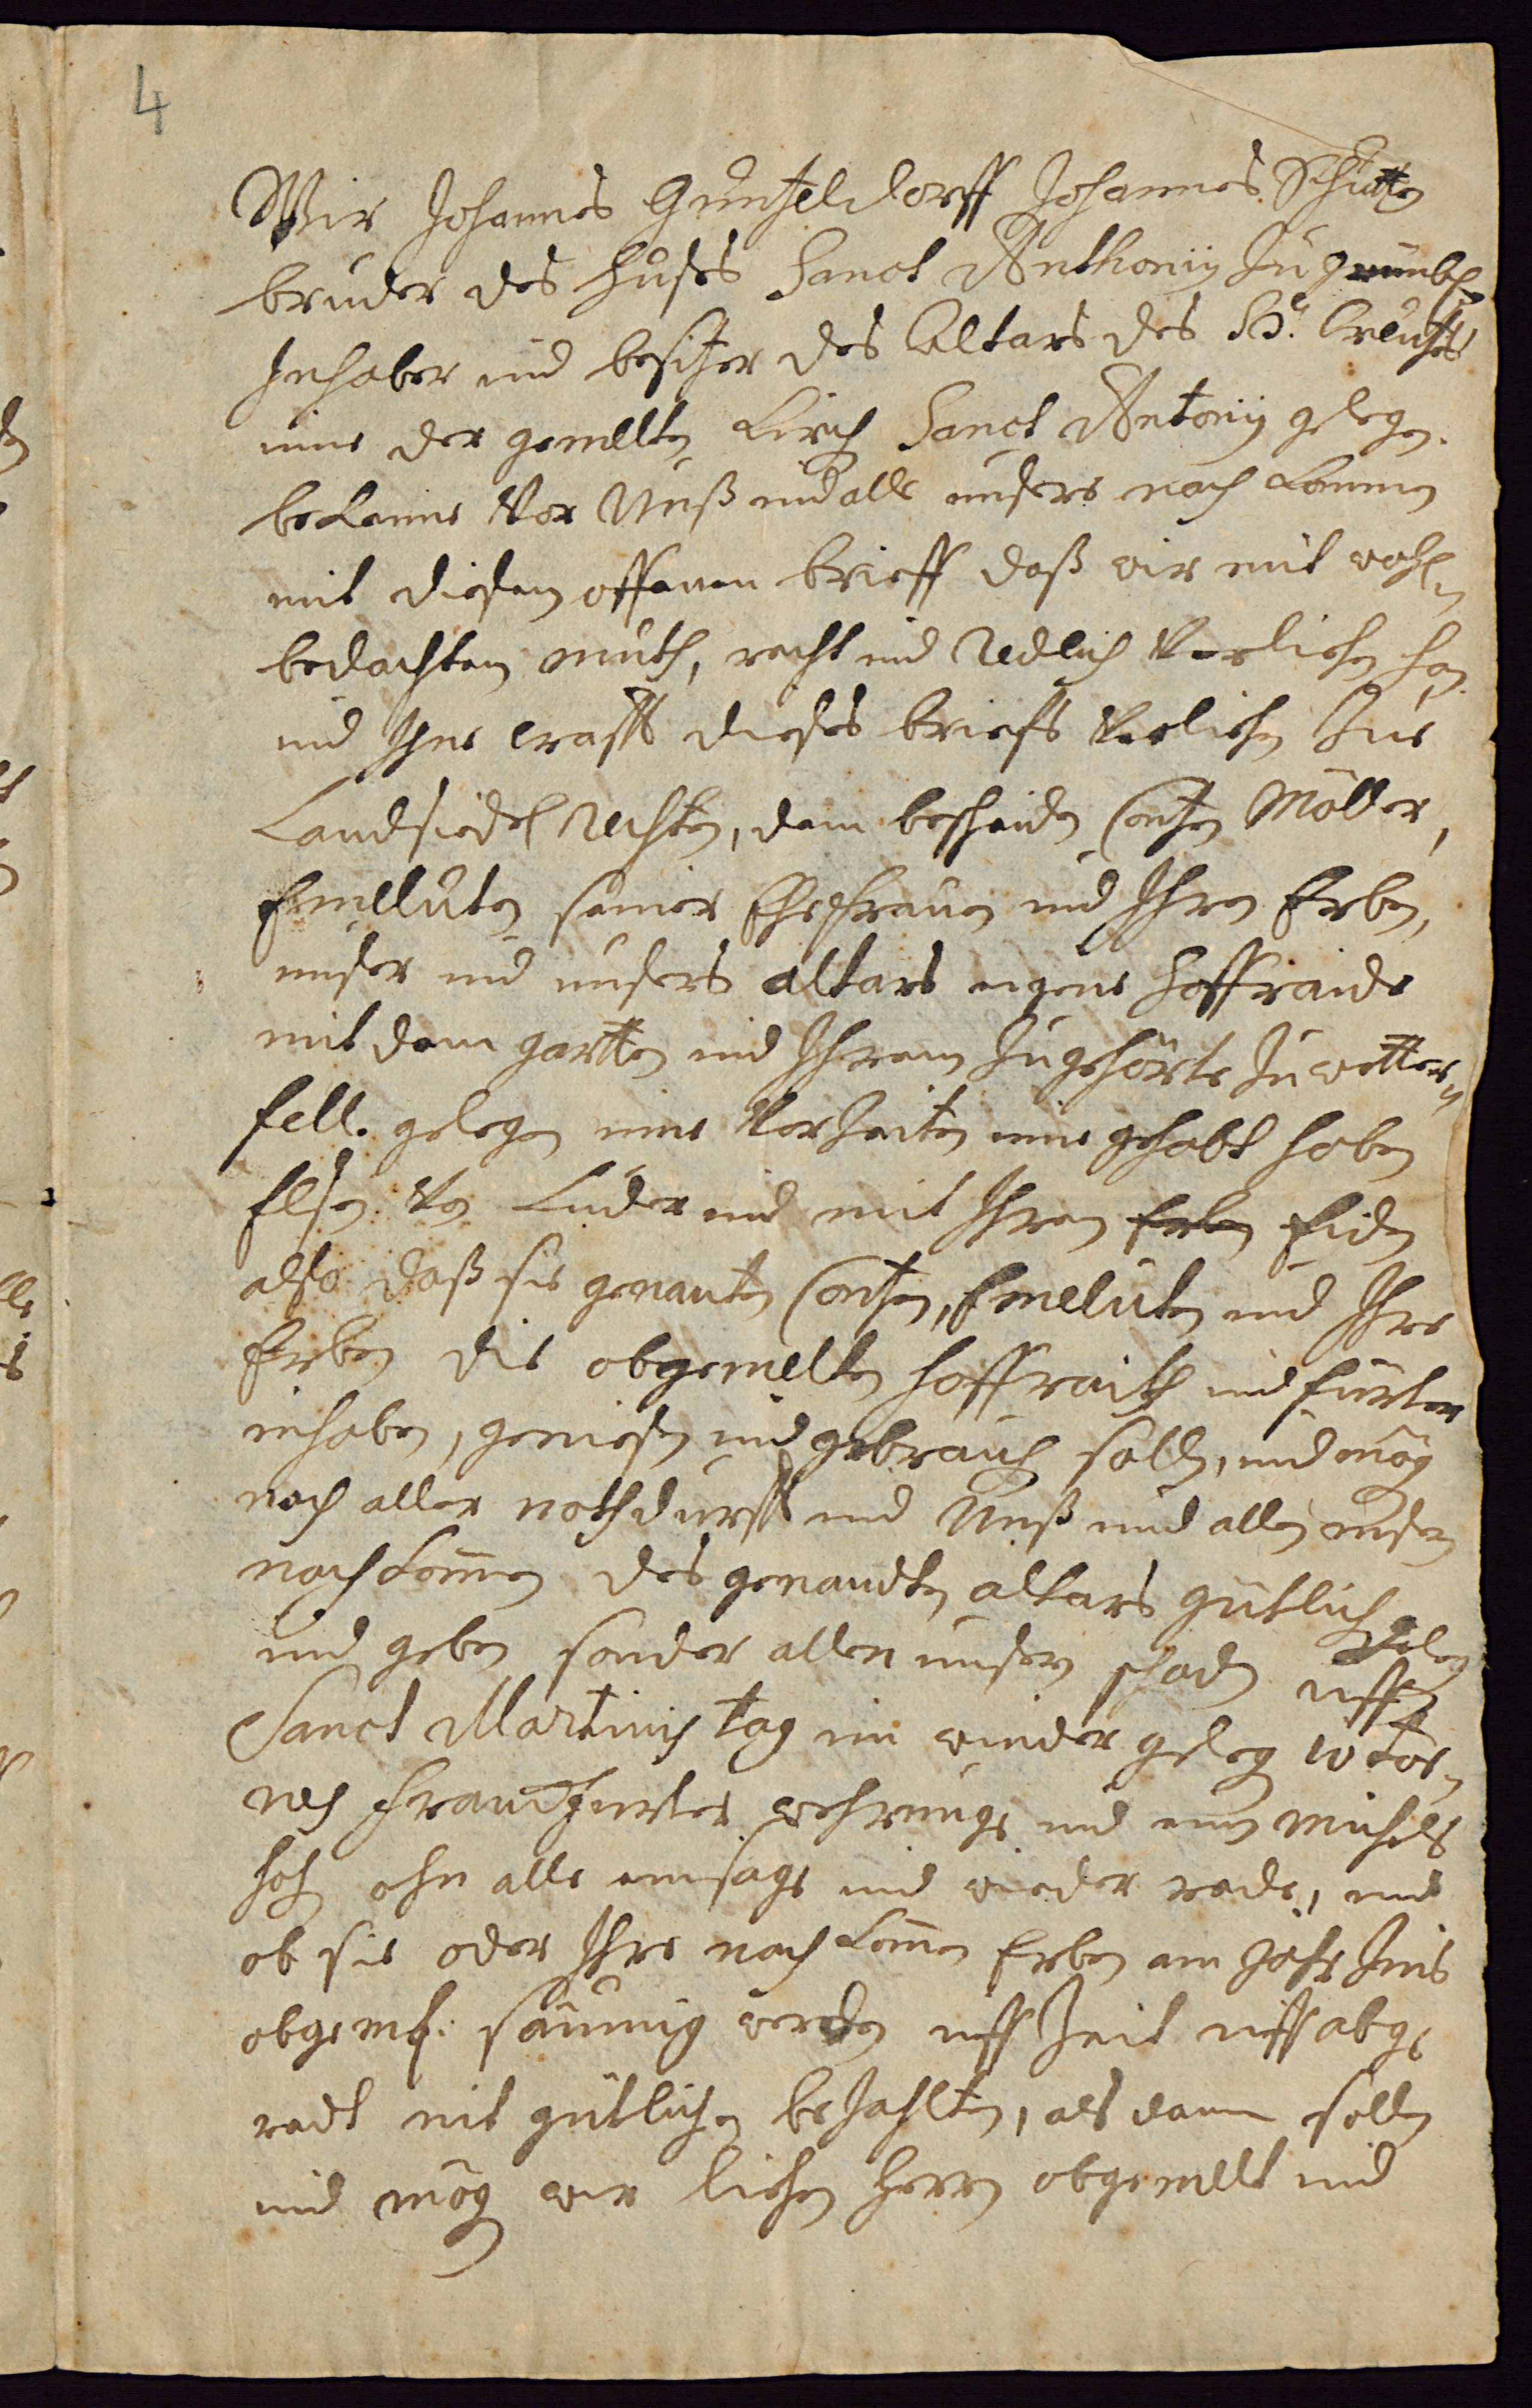 4
Wir Johannes Guntzeldorff Johannes Schutten
bruder des Huses Sanct Anthonij zu grünbg
Inhaber und besitzer des Altars des H. Creutzes
inne der gemelten Kirch Sanct Antonij gelegen.
bekenne Vor Unß und alle unsere nach kommen
mit diesem offenen brieff daß wir mit wohl
bedachtem muth, recht und Redlich Verliehen han
und Ihne crafft dieses briefs Verliehen zue
Landsiedel Rechten, dem bescheiden Contzen Möller,
Emelluten seiner Ehefrauen und Ihren Erben,
unser und unsers altars eigene hoffraide
mit dem gartten und Ihrem zugehörte zu wetters
fell. gelegen inne Vorzeiten inne gehabt haben
Elsen Von Luder und mit Ihren Erben Eiden
also daß sie genanten Contzen, Emeluten und Ihre
Erben die obgemelten hoffraith und fürter
inhaben, geniesen und gebrauch sollen, und mög
nach aller nothdurfft und Unß und allen unsern
nachkommen des genandten altars gütlich gelten
und geben sonder allen unsern schaden uff
Sanct Martinij tag im winder gelegen 10 tor,
nes Franckfurter wehrunge und ein michels
hoh ohn alle einsage und wieder rede, und
ob sie oder Ihre nachkommen Erben am Jahr Zins
obgemt: säumig werden uff Zeit uff abge
redt nit gütlichen bezahlten, als dann sollen
und mög wir liehen Herrn obgemelt und